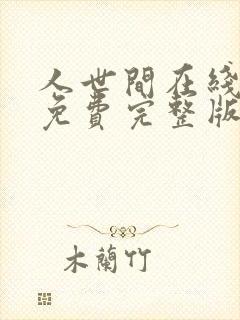 人世間在綫
免費完整版
木蘭竹